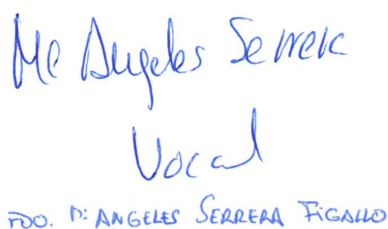 Mª Angeles Serrera
Vocal
FDO. Mª ANGELES SERRERA FIGALLO